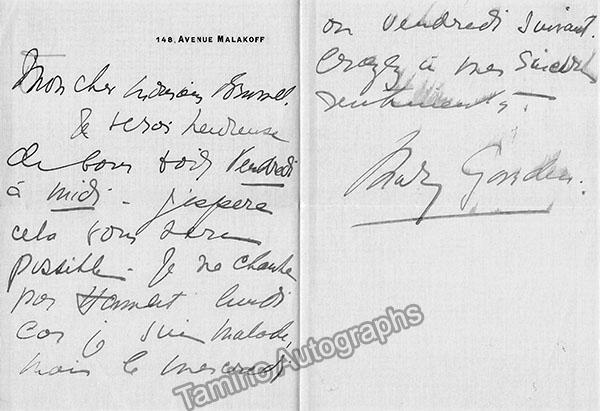 148, AVENUE MALAKOFF
Mon cher Monsieur Brussel.
Je serai heureuse
de vous voir Vendredi
à midi - j'espère
cela vous sera
possible - Je ne chante
pas Hamlet lundi
car je suis malade,
mais le mercredi
ou vendredi suivant.
Croyez à mes sincères
sentiments.
Mary Garden.
Tamino Autographs